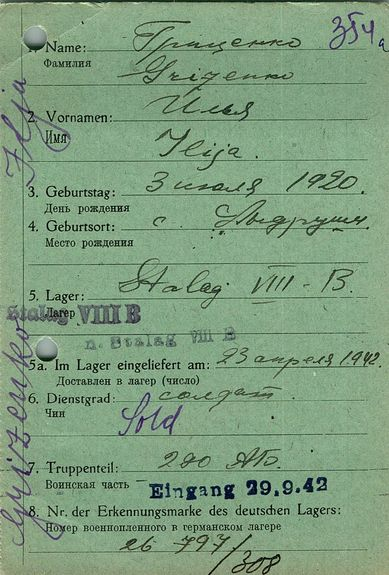 354a
1. Name: Гриценко
Фамилия
Grizenko
2. Vornamen: Илья
Имя
Ilija.
3. Geburtstag: 3 июля 1920.
День рождения
4. Geburtsort: с.
Место рождения
5. Lager: Stalag VIII-B.
Лагер
Stalag VIII B
n. Stalag VIII B
5a. Im Lager eingeliefert am: 23 апреля 1942.
Доставлен в лагер (число)
6. Dienstgrad: солдат.
Чин
Sold
7. Truppenteil: 290
Воинская часть
Eingang 29.9.42
8. Nr. der Erkennungsmarke des deutschen Lagers:
Номер военнопленного в германском лагере
797/308
Grizenko Ilja